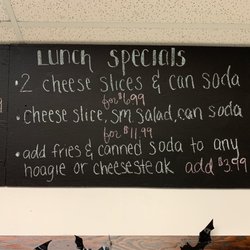 Lunch Specials
• 2 cheese slices & can soda
for $6.99
• cheese slice, sm salad, can soda
for $11.99
• add fries & canned soda to any
hoagie or cheesesteak add $3.99